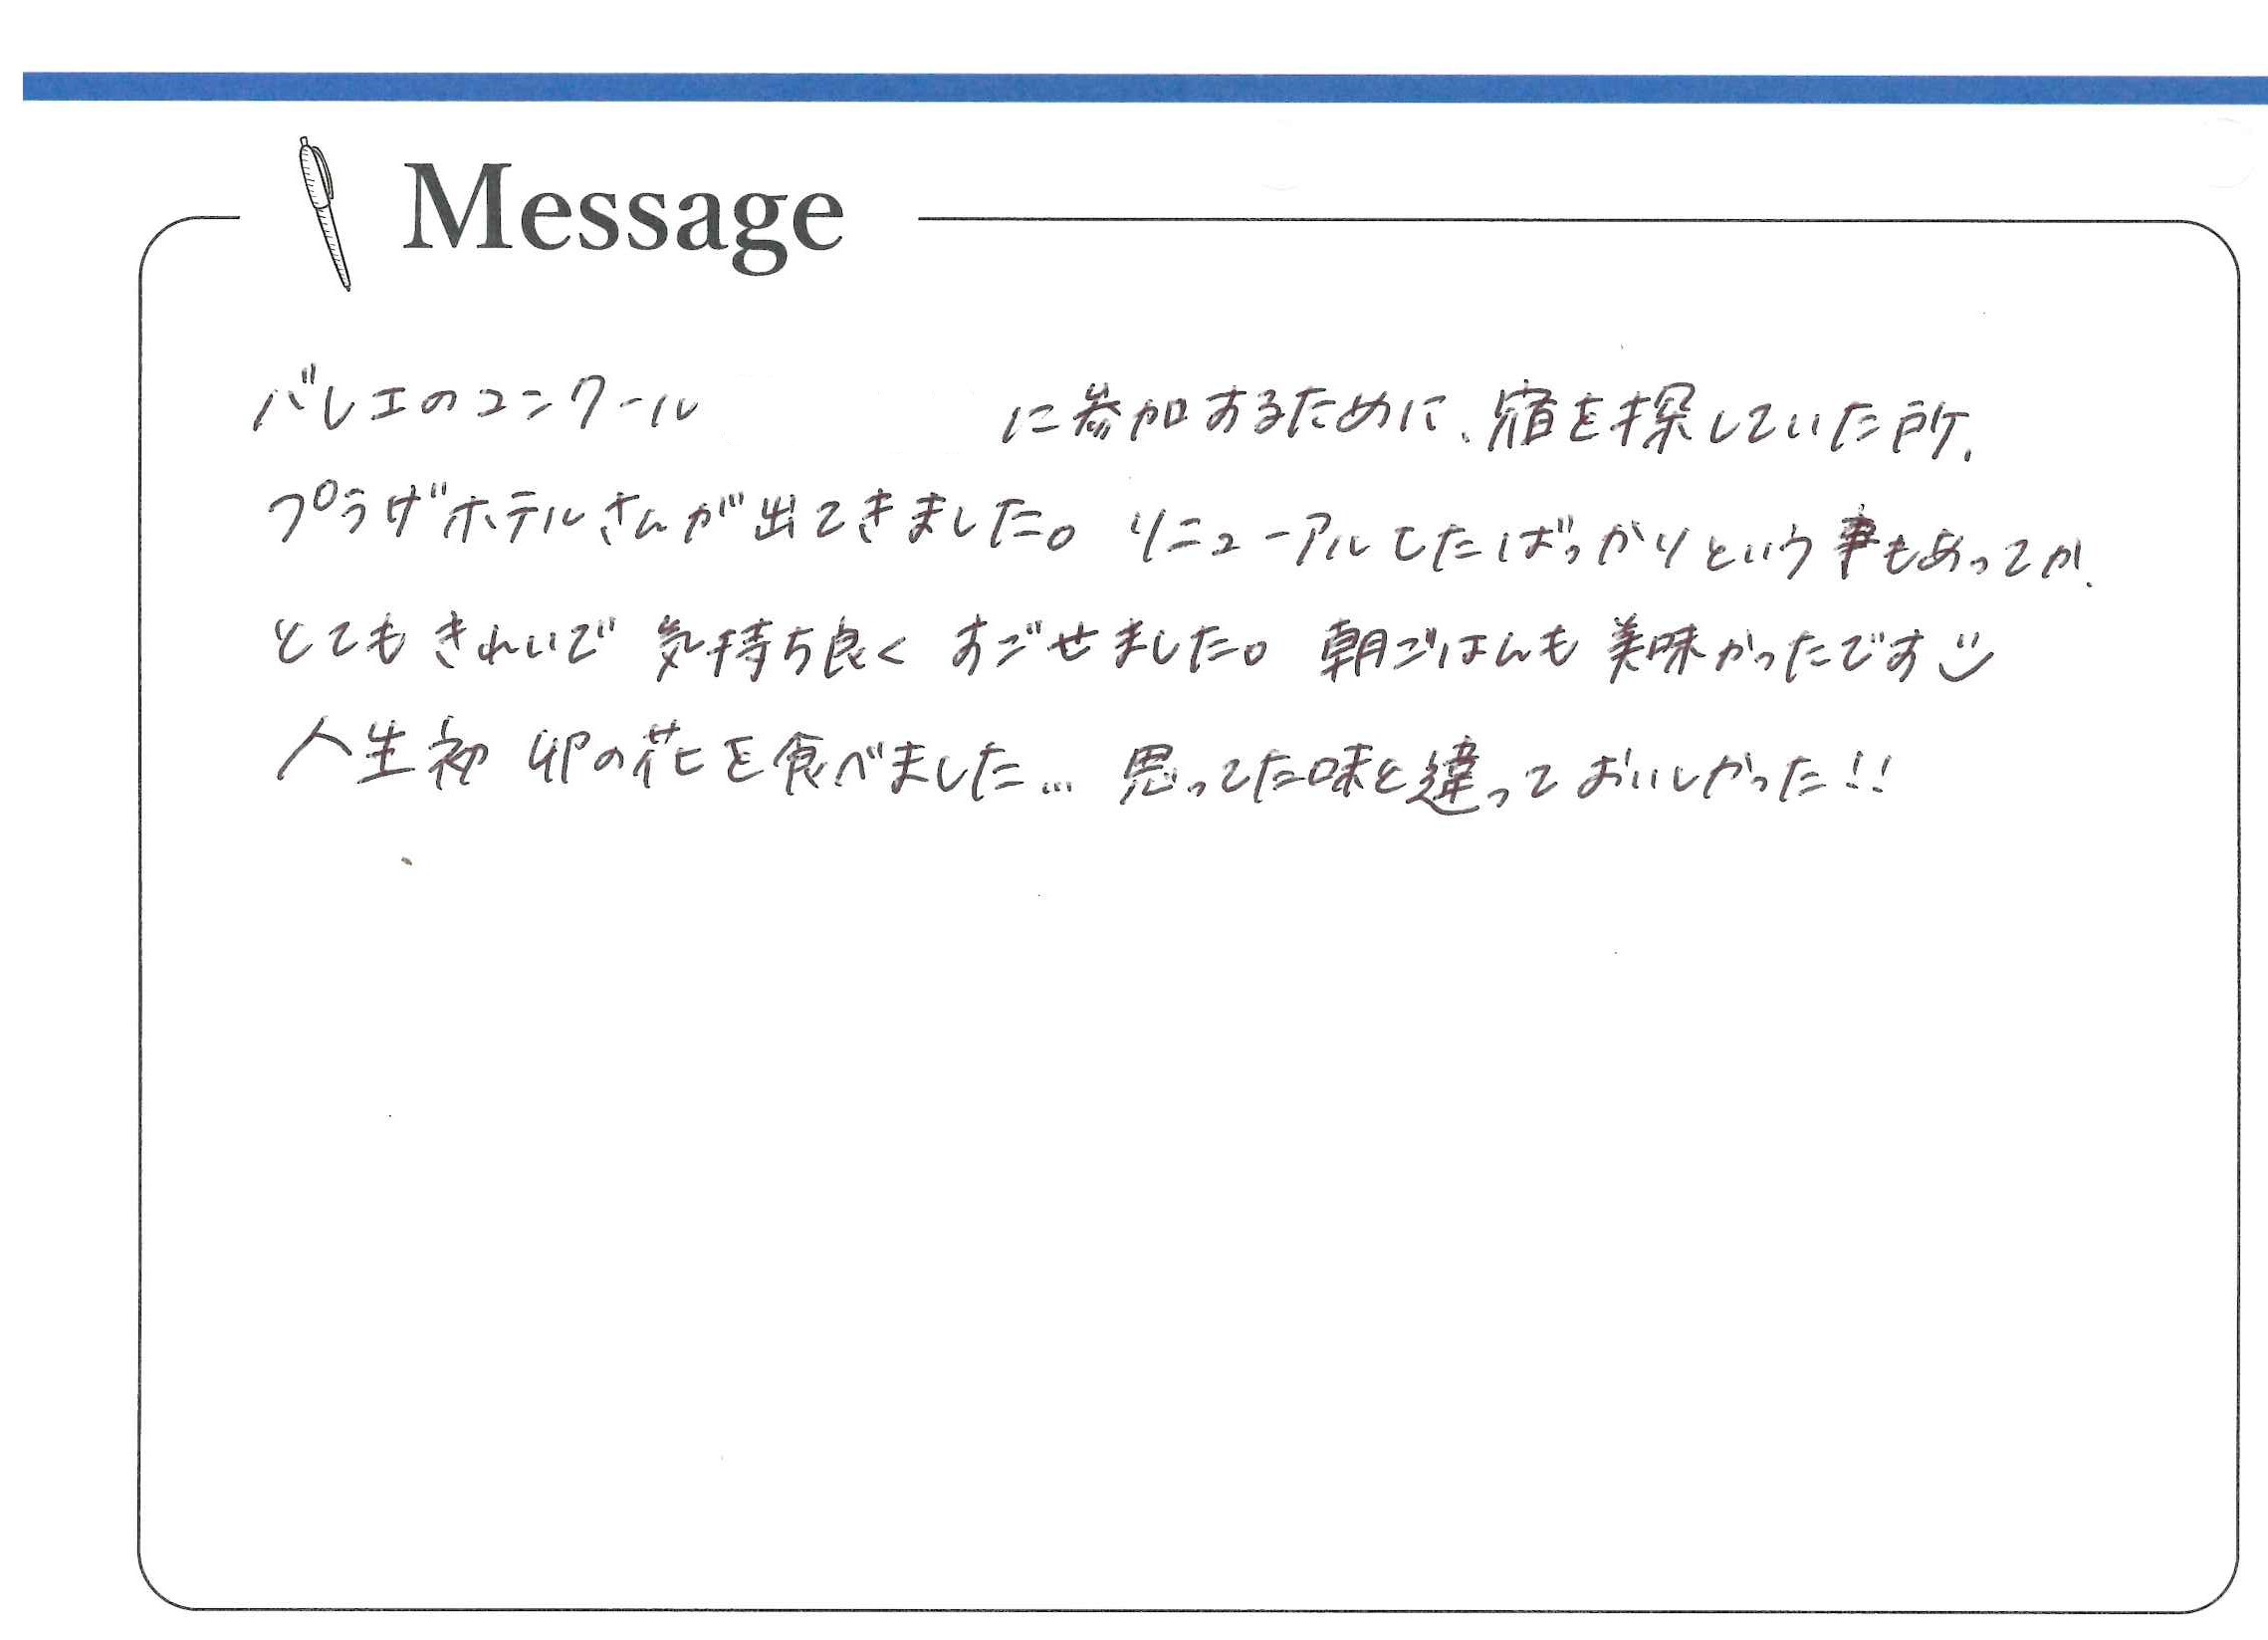 Message
バレエのコンクール に参加するために、宿を探していた所、
プラザホテルさんが出てきました。リニューアルしたばっかりという事もあってか、
とてもきれいで 気持ち良く すごせました。朝ごはんも 美味かったです
人生初 卯の花を食べました… 思ってた味と違って おいしかった!!